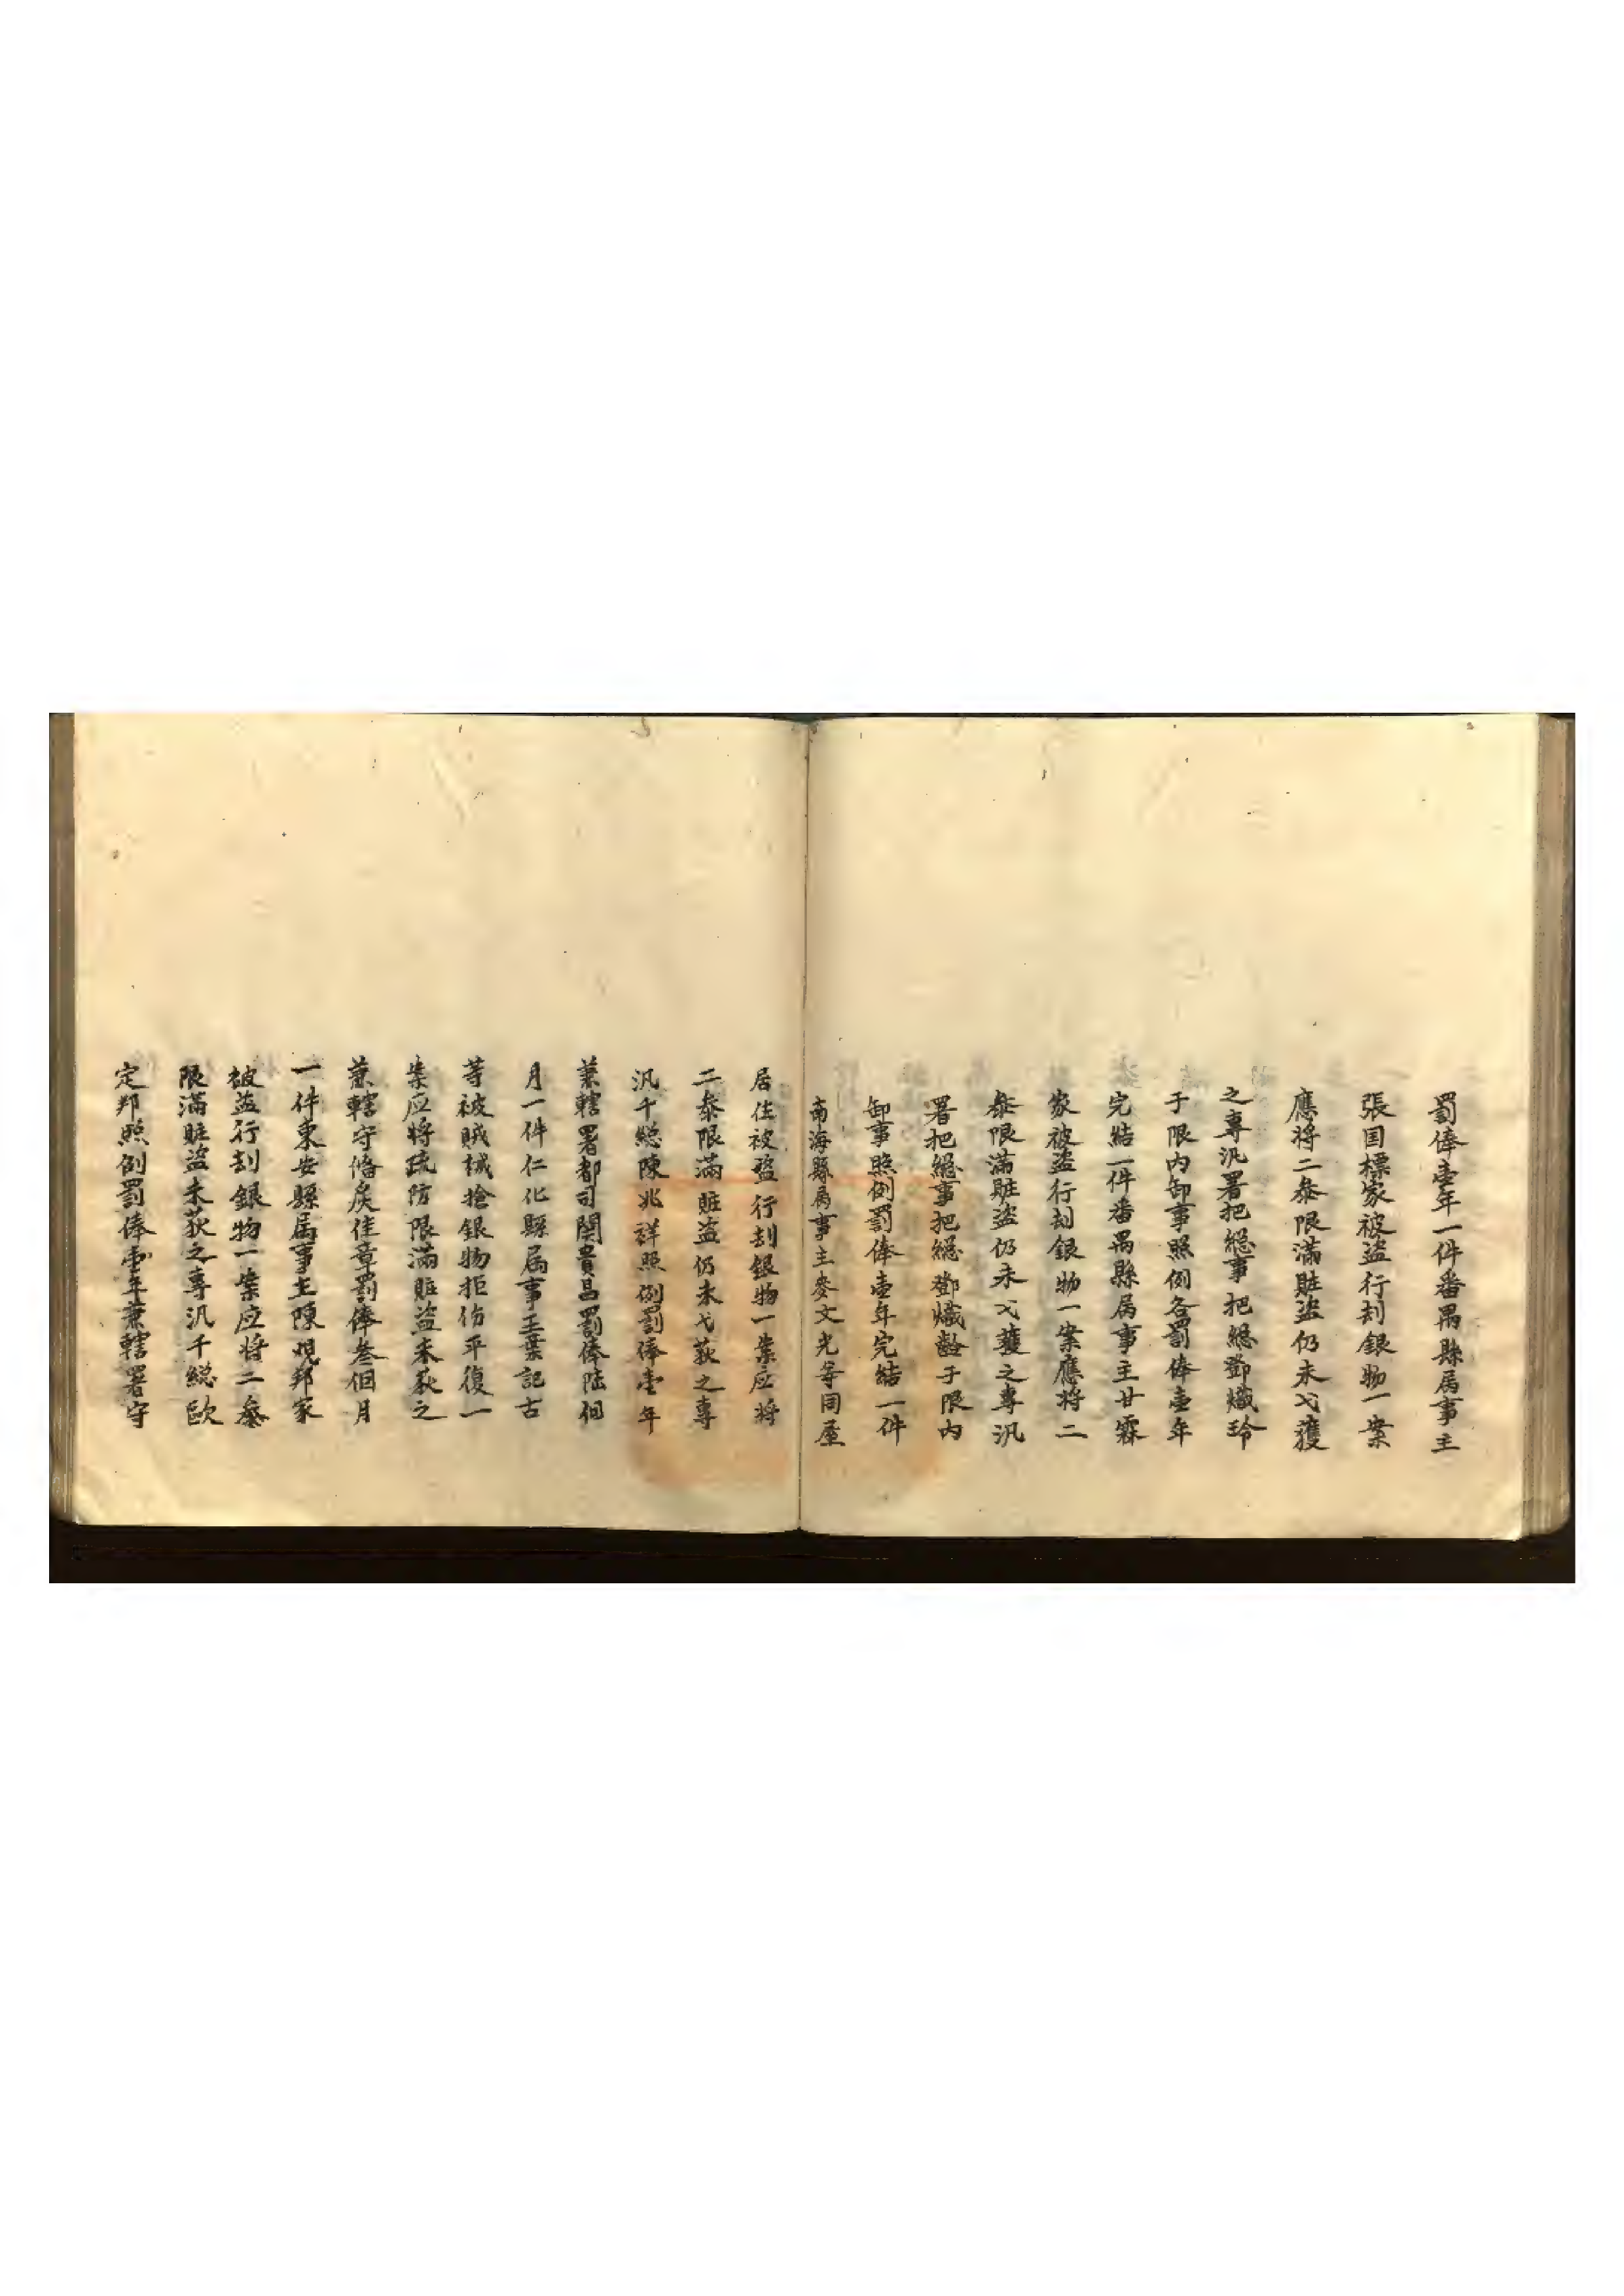 罰俸壹年一件番禺縣属事主
張国標家被盜行刦銀物一案
應將二叅限滿賍盜仍未弋獲
之專汛署把緫事把緫鄧熾玲
于限内卸事照例各罰俸壹年
完結一件番禺縣属事主甘霖
家被盜行刦銀物一案應將二
叅限滿賍盜仍未弋獲之專汛
署把緫事把緫鄧熾齡于限内
卸事照例罰俸壹年完結一件
南海縣属事主麥文光等同屋
居住被盜行刦銀物一案应將
二叅限滿賍盜仍未弋获之專
汛千緫陳兆祥照例罰俸壹年
兼轄署都司関貴昌罰俸陆個
月一件仁化縣属事主葉記古
等被賊械搶銀物拒伤平復一
案应將疏防限滿賍盜未获之
兼轄守俻侯佳章罰俸叁個月
一件東安縣属事主陳規邦家
被盜行刦銀物一案应將二叅
限滿賍盜未获之專汛千緫歐
定邦照例罰俸壹年兼轄署守